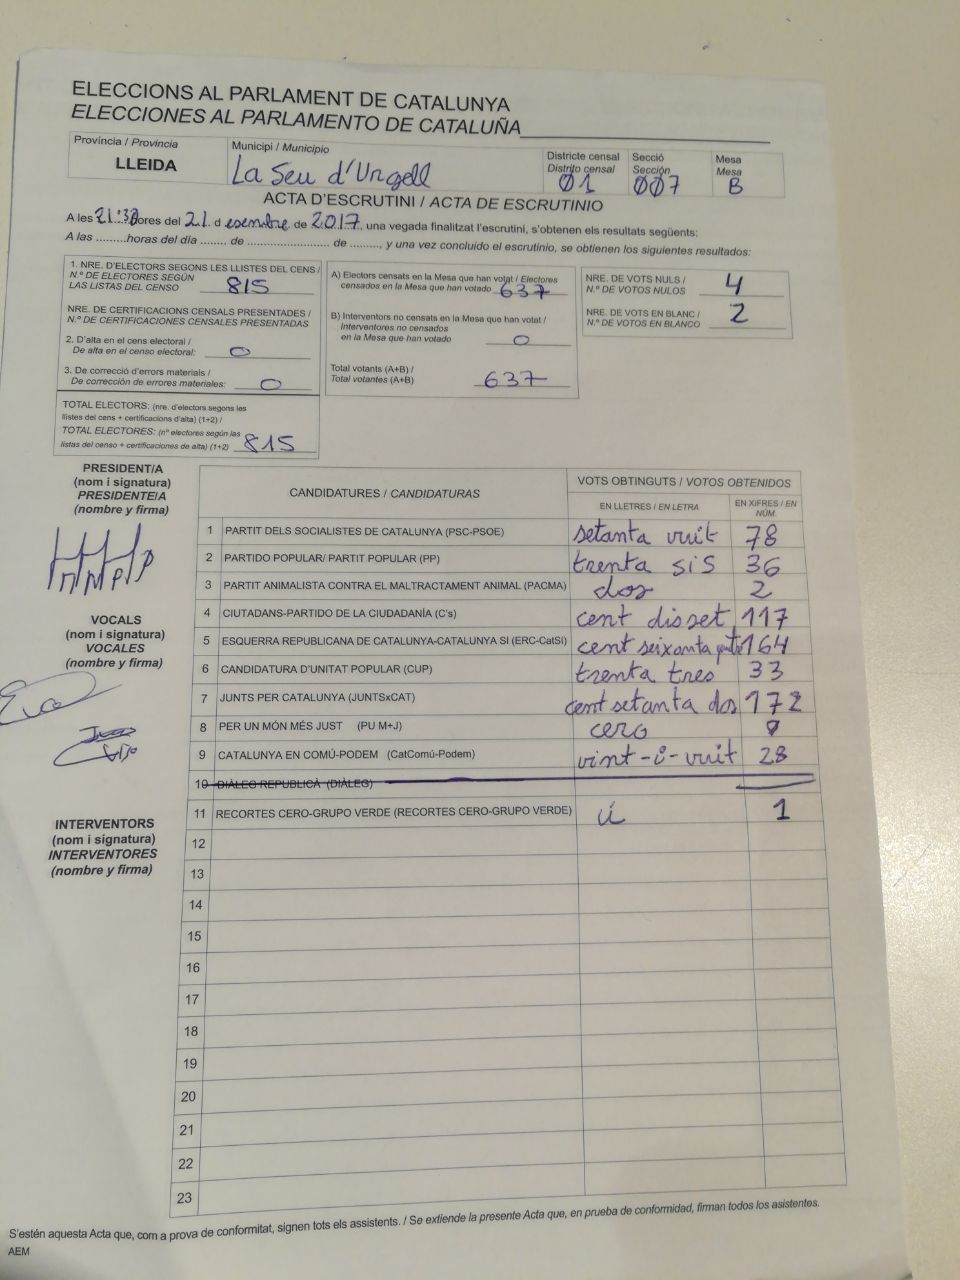 ELECCIONS AL PARLAMENT DE CATALUNYA
ELECCIONES AL PARLAMENTO DE CATALUÑA
Província / Provincia
LLEIDA
Municipi / Municipio
La Seu d'Urgell
Districte censal
Distrito censal
01
Secció
Sección
007
Mesa
Mesa
B
ACTA D'ESCRUTINI / ACTA DE ESCRUTINIO
A les 21:30 hores del 21 d esembre de 2017, una vegada finalitzat l'escrutini, s'obtenen els resultats següents:
A las .........horas del día ....... de ......................... de ........., y una vez concluido el escrutinio, se obtienen los siguientes resultados:
1. NRE. D'ELECTORS SEGONS LES LLISTES DEL CENS /
N.º DE ELECTORES SEGÚN
LAS LISTAS DEL CENSO 815
NRE. DE CERTIFICACIONS CENSALS PRESENTADES /
N.º DE CERTIFICACIONES CENSALES PRESENTADAS
2. D'alta en el cens electoral /
De alta en el censo electoral: 0
3. De correcció d'errors materials /
De corrección de errores materiales: 0
TOTAL ELECTORS: (nre. d'electors segons les
llistes del cens + certificacions d'alta) (1+2) /
TOTAL ELECTORES: (nº electores según las
listas del censo + certificaciones de alta) (1+2) 815
A) Electors censats en la Mesa que han votat / Electores
censados en la Mesa que han votado 637
B) Interventors no censats en la Mesa que han votat /
Interventores no censados
en la Mesa que han votado 0
Total votants (A+B) /
Total votantes (A+B) 637
NRE. DE VOTS NULS /
N.º DE VOTOS NULOS 4
NRE. DE VOTS EN BLANC /
N.º DE VOTOS EN BLANCO 2
PRESIDENT/A
(nom i signatura)
PRESIDENTE/A
(nombre y firma)
VOCALS
(nom i signatura)
VOCALES
(nombre y firma)
INTERVENTORS
(nom i signatura)
INTERVENTORES
(nombre y firma)
CANDIDATURES / CANDIDATURAS
VOTS OBTINGUTS / VOTOS OBTENIDOS
EN LLETRES / EN LETRA
EN XIFRES / EN
NÚM.
1 PARTIT DELS SOCIALISTES DE CATALUNYA (PSC-PSOE) setanta vuit 78
2 PARTIDO POPULAR/ PARTIT POPULAR (PP) trenta sis 36
3 PARTIT ANIMALISTA CONTRA EL MALTRACTAMENT ANIMAL (PACMA) dos 2
4 CIUTADANS-PARTIDO DE LA CIUDADANÍA (C's) cent disset 117
5 ESQUERRA REPUBLICANA DE CATALUNYA-CATALUNYA SÍ (ERC-CatSí) cent seixanta 164
6 CANDIDATURA D'UNITAT POPULAR (CUP) trenta tres 33
7 JUNTS PER CATALUNYA (JUNTSxCAT) cent setanta dos 172
8 PER UN MÓN MÉS JUST (PU M+J) cero 0
9 CATALUNYA EN COMÚ-PODEM (CatComú-Podem) vint-i-vuit 28
10 DIÀLEG REPUBLICÀ (DIÀLEG)
11 RECORTES CERO-GRUPO VERDE (RECORTES CERO-GRUPO VERDE) ú 1
12
13
14
15
16
17
18
19
20
21
22
23
S'estén aquesta Acta que, com a prova de conformitat, signen tots els assistents. / Se extiende la presente Acta que, en prueba de conformidad, firman todos los asistentes.
AEM